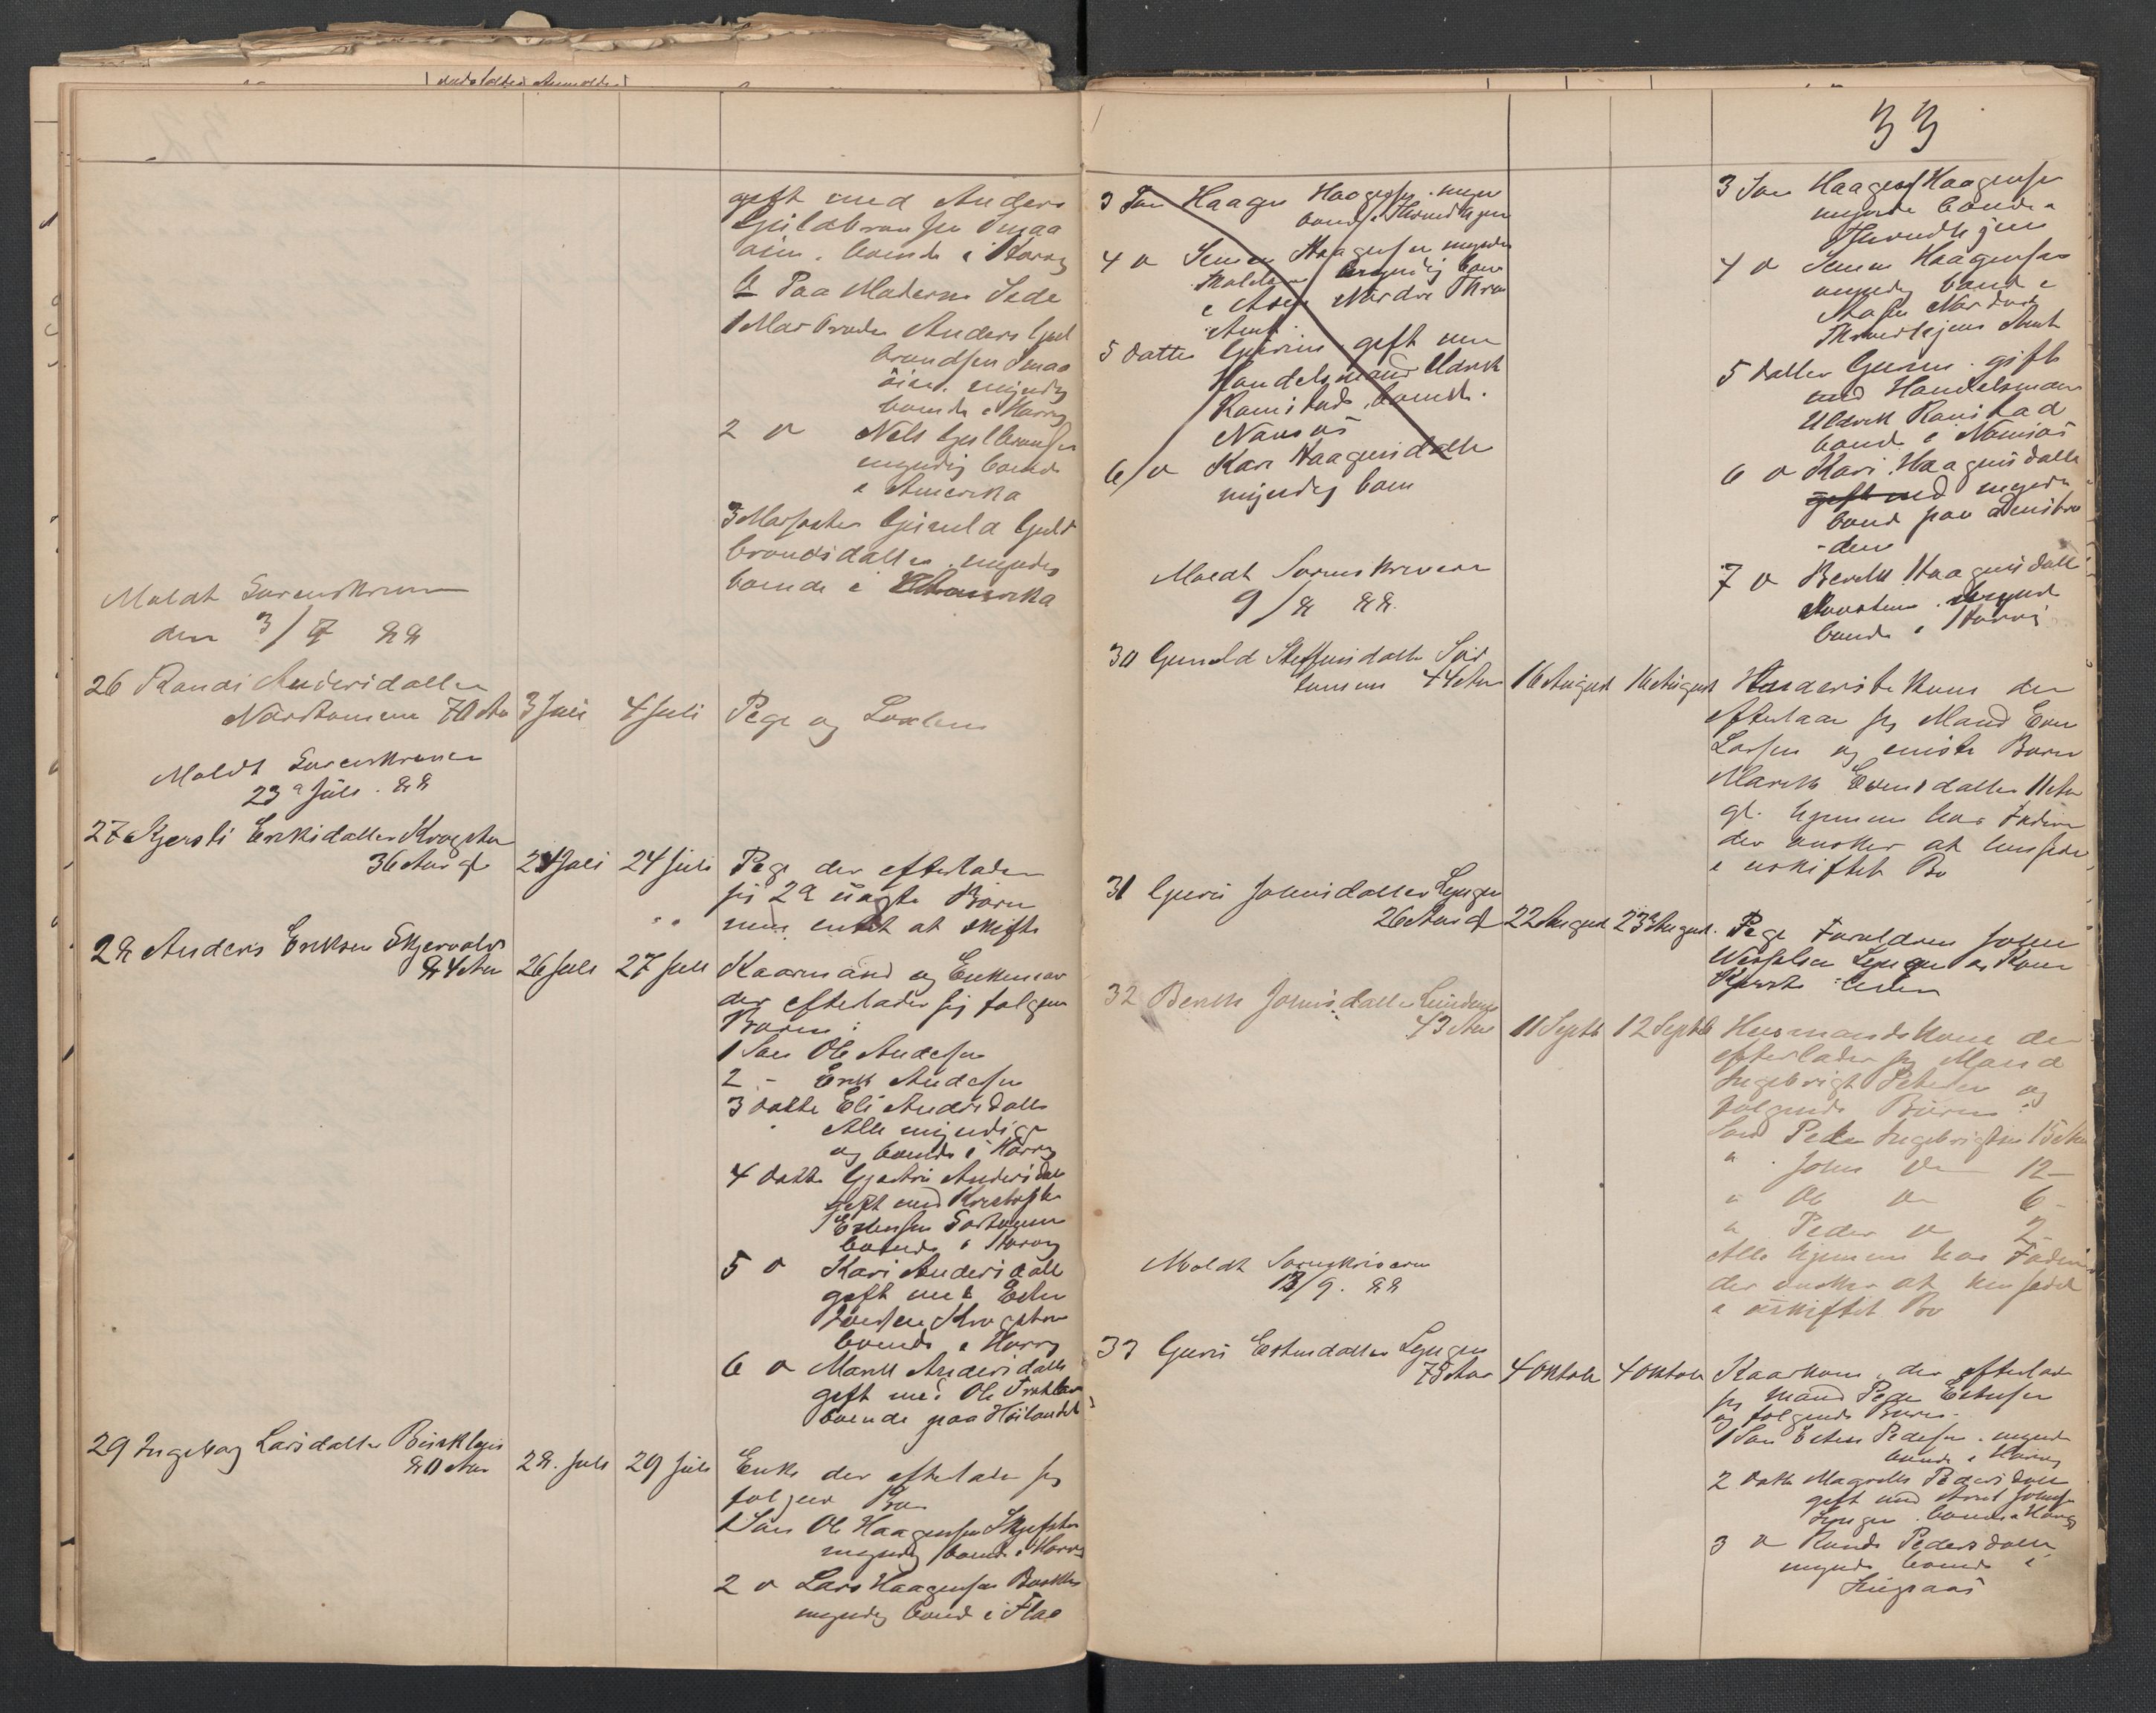 gift med Anders
Guldbransen Smaa
øien. boende i Horrig
b Paa Moderens Side
1 Morbroder Anders Gul
brandsen Smaa
øien. myndig
boende i Horrig
2 do Nels Gulbransen
myndig boende
i Amerika
3 Morsøster Gunild Guld
brandsdatter. myndig
boende i Amerika
Meldt Sorenskriveren
den 3/7 88
26 Randi Andersdatter
Nordtømme 70 Aar 3 Juli 4 Juli Pige og Loslem
Meldt Sorenskriveren
23de Juli. 88
27 Kjersti Eriksdatter Krogstu
36 Aar gl 21 Juli 24 Juli Pige der efterlader
sig 2de uægte Børn
men intet at skifte
28 Anders Eriksen Skjervold
84 Aar 26 Juli 27 Juli Kaarmand og Enkemand
der efterlader sig følgende
Børn:
1 Søn Ole Andersen
2 - Erik Andersen
3 Datter Eli Andersdatter
Alle myndige
og boende i Horrig
4 Datter Gjertru Andersdatter
gift med Kristofer
Estensen
boende i Horrig
5 do Kari Andersdatter
gift med Esten
Krogstu
boende i Horrig
6 do Marit Andersdatter
gift med Ole
boende paa Høilandet
29 Ingeborg Larsdatter
80 Aar 28. Juli 29 Juli Enke der efterlader sig
følgende Børn
1 Søn Ole Haagensen
myndig boende i Horrig
2 do Lars Haagensen
myndig boende i Flaa
33
3 Søn Haagen Haagensen. myn
boende Throndhjem
4 do Simen Haagensen myndig
myndig boende
i Aasen Nordre Thro
Amt
5 Datter Guruni. gift med
Handelsmand Ulrik
Ramstad. boende.
Namsos
6 do Kari Haagensdatter
myndig boen
Meldt Sorenskriveren
9/8 88.
3 Søn Haagen Haagensen
myndig boende
Throndhjem
4 do Simen Haagensen
myndig boende i
Aasen Nordre
Throndhjems Amt
5 Datter Guruni. gift
med Handelsmand
Ulrik Ramstad
boende i Namsos
6 do Kari Haagensdatter
gift med myndig
boende paa
den
7 do Berit Haagensdatter
myndig
boende i Horrig
30 Gunild Steffensdatter Sør
tømme 44 Aar 16 August 16 August Gaardmandskone der
efterlader sig Mand Even
Larsen og eneste Barn
Marit Evensdatter 11 Aar
gl. hjemme hos Faderen
der ønsker at hensidde
i uskiftet Bo
31 Guru Johnsdatter Lyngen
26 Aar gl 22 August 23de August. Pige Forældrene John
Lyngen og Kone
Kjersti lever
32 Berit Johnsdatter
43 Aar 11 Septb 12 Septb Husmandskone der
efterlader sig Mand
Ingebrigt Pedersen og
følgende Børn:
Søn Peder Ingebrigtsen 15 Aar
" John do 12 -
" Ole do 6 -
" Peder do 2 -
Alle hjemme hos Faderen
der ønsker at hensidde
i uskiftet Bo
Meldt Sorenskriveren
13/9. 88
33 Guru Estensdatter Lyngen
78 Aar 4 Oktob 4 Oktob Kaarkone. der efterlader
sig Mand Peder Estensen
og følgende Børn.
1 Søn Esten Pedersen. myndig
boende i Horrig
2 Datter Magnhild Pedersdatter
gift med Arnt Johnsen
Lyngen. boende i Horrig
3 do Randi Pedersdatter
myndig boende i
Singsaas